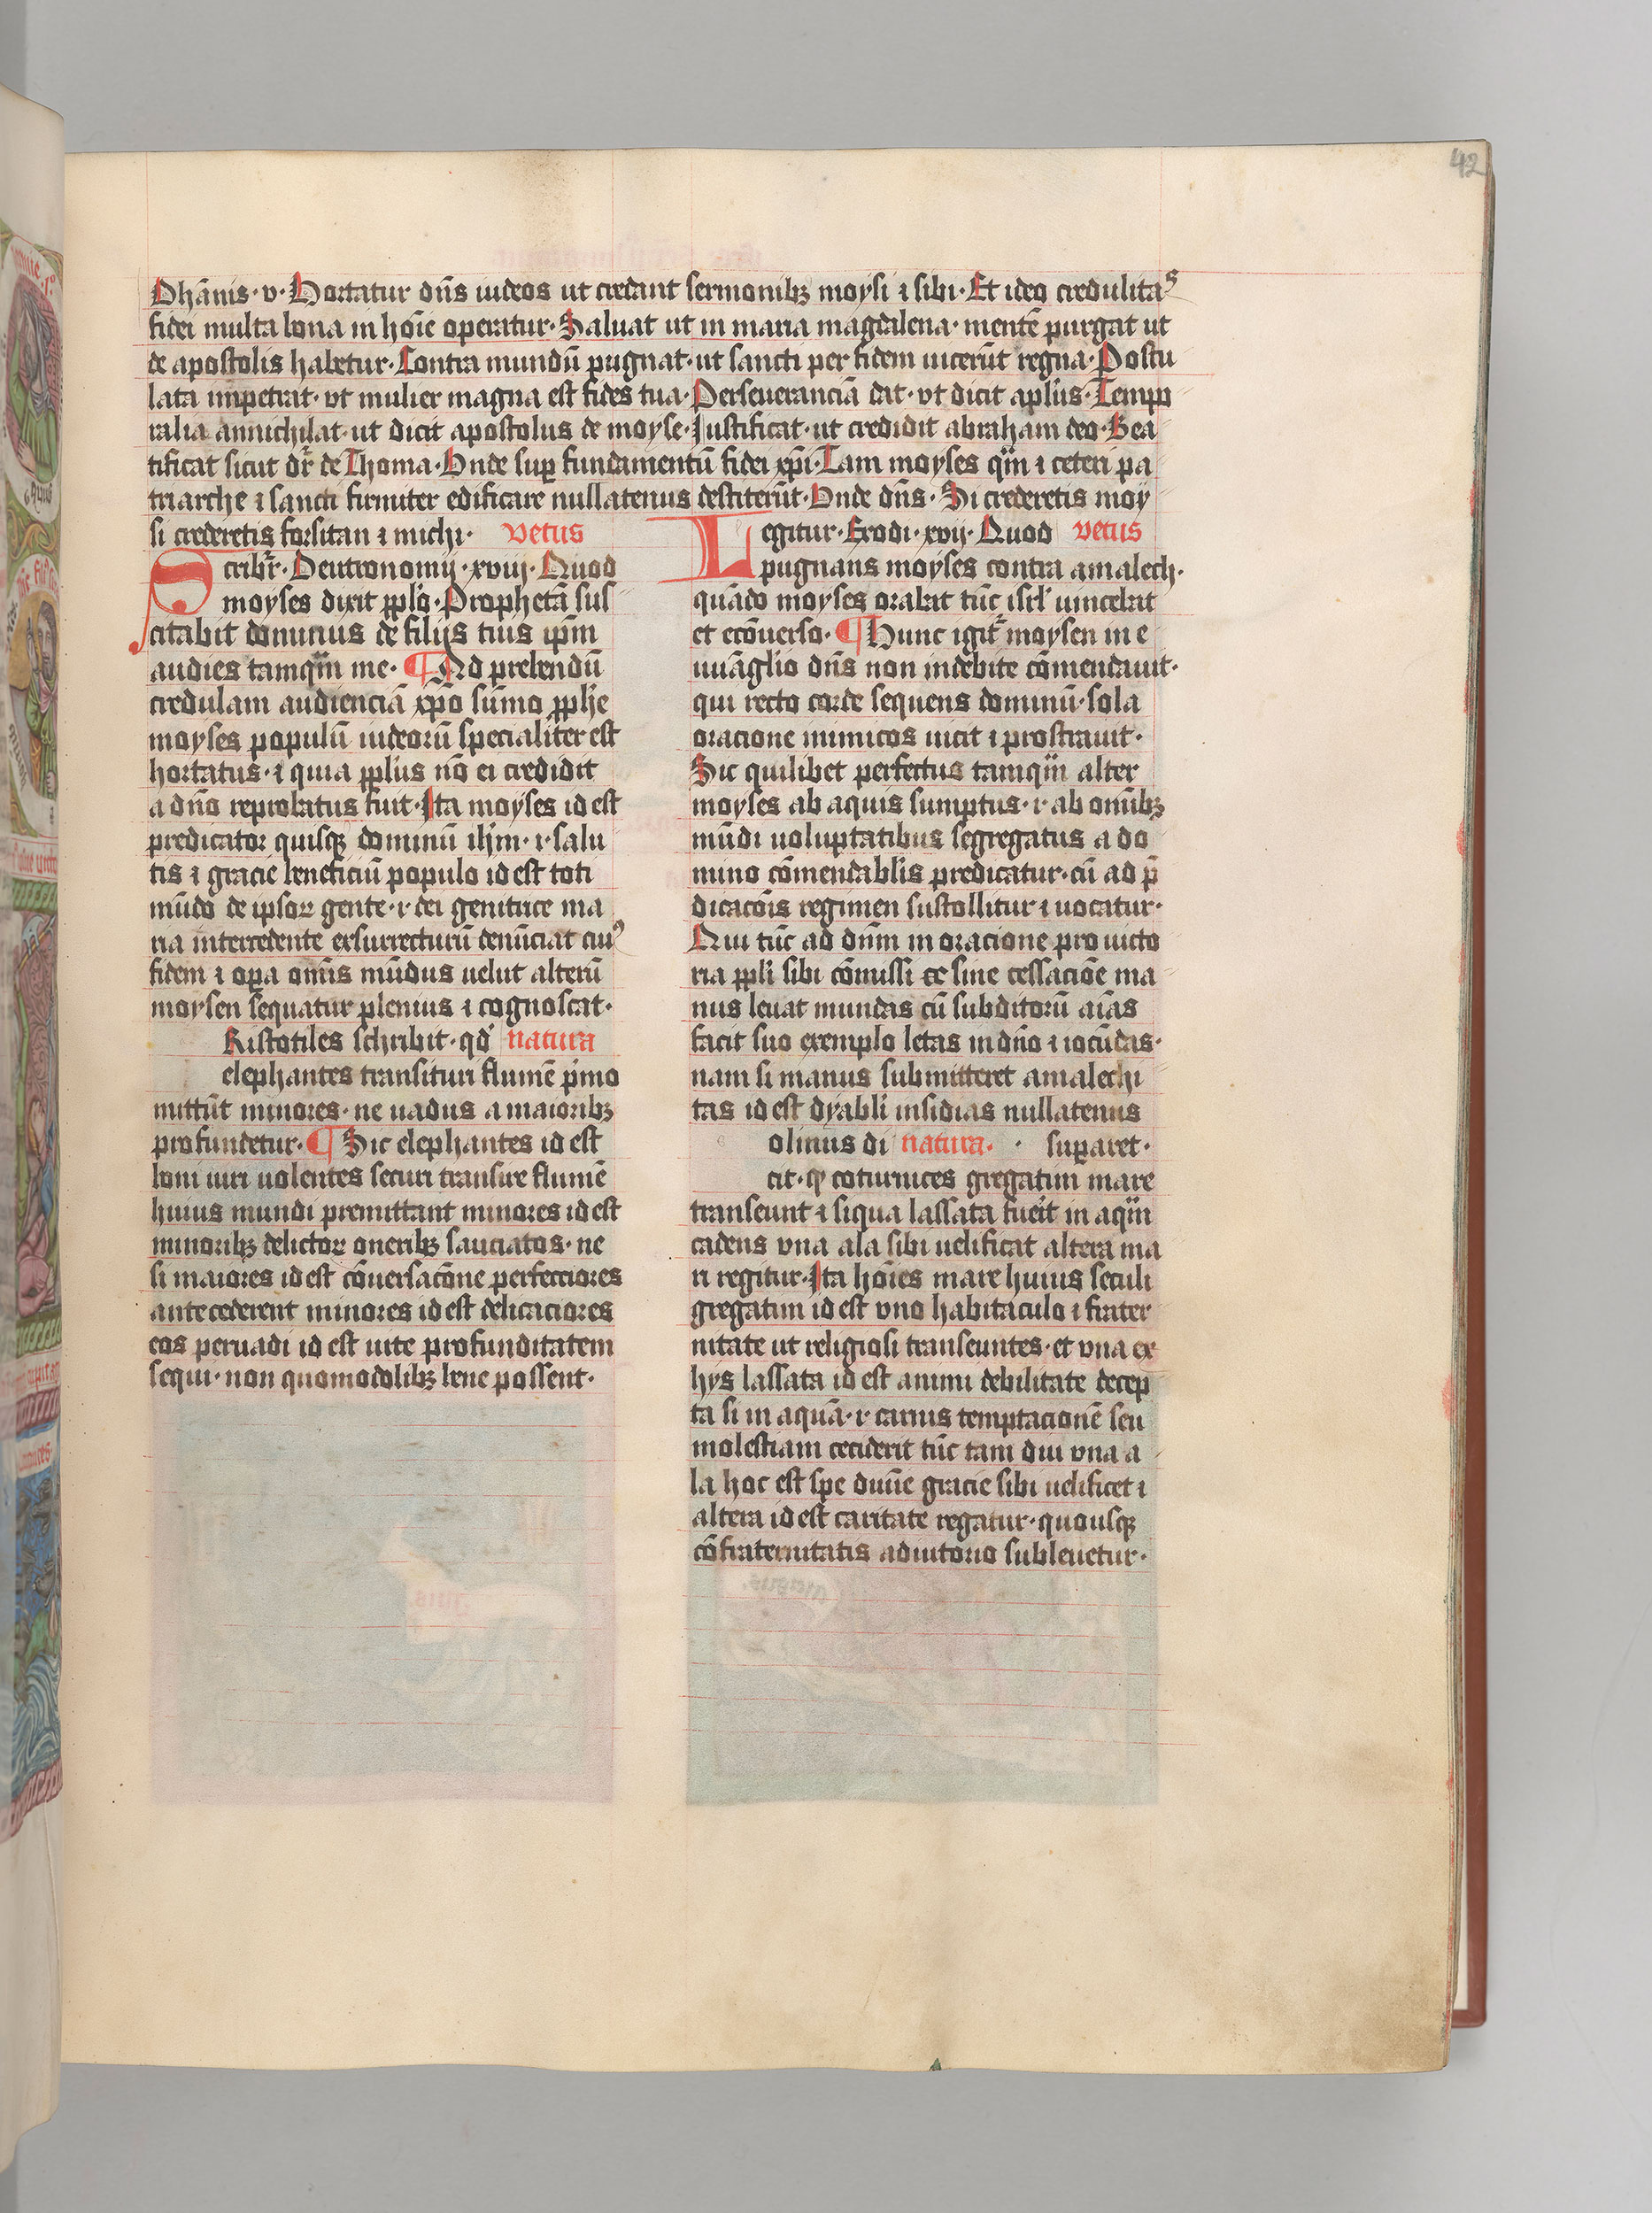 42
Ohānis · v · Hortatur dn̄s iudeos ut credant sermonibꝫ moysi ⁊ sibi · Et ideo credulitaˢ
fidei multa bona in hoīe operatur · Saluat ut in maria magdalena · mentē purgat ut
de apostolis habetur · Contra mundū pugnat · ut sancti per fidem uicerūt regna · Postu
lata impetrat · vt mulier magna est fides tua · Perseueranciā dat · vt dicit apl̄us · Tempo
ralia annichilat · ut dicit apostolus de moyse · Iustificat · ut credidit abraham deo · Bea
tificat sicut dr̄ de Thoma · Unde suꝑ fundamentū fidei xp̄i · Tam moyses qm̄ ⁊ ceteri pa
triarche ⁊ sancti firmiter edificare nullatenus destiterūt · Unde dn̄s · Si crederetis moy
si crederetis forsitan ⁊ michi · vetus
Scribr̄ · Deutronomij · xviij · Quod
moyses dixit ꝓplo · Prophetā sus
citabit dominus de filijs tuis ip̄m
audies tamqm̄ me · ¶ Ad prebendū
credulam audienciā xp̄o sūmo ꝓph̄e
moyses populū iudeorū specialiter est
hortatus · ⁊ quia ꝓpl̄us nō ei credidit
a dn̄o reprobatus fuit · Ita moyses id est
predicator quisqꝫ dominū ih̄m · i · salu
tis ⁊ gracie beneficiū populo id est toti
mūdo de ipsoꝝ gente · i · dei genitrice ma
ria intercedente exsurrecturū denūciat cuiꝰ
fidem ⁊ oꝑa om̄is mūdus uelut alterū
moysen sequatur plenius ⁊ cognoscat ·
Ristotiles schribit · qd̄ natura
elephantes transituri flumē p̄mo
mittūt minores · ne uadus a maioribꝫ
profundetur · ¶ Sic elephantes id est
boni iuri uolentes securi transire flumē
huius mundi premittant minores id est
minoribꝫ delictoꝝ oneribꝫ sauciatos · ne
si maiores id est cōuersacōne perfecciores
antecederent minores id est delicaciores
eos peruadi id est uite profunditatem
sequi · non quomodolibꝫ bene possent ·
Legitur · Exodi · xvij · Quod vetus
pugnans moyses contra amalech ·
quādo moyses orabat tūc isrl̄ uincebat
et ecōuerso · ¶ Hunc igit᷑ moysen in e
uuāglio dn̄s non indebite cōmendauit ·
qui recto corde sequens dominū · sola
oracione inimicos uicit ⁊ prostrauit ·
Sic quilibet perfectus tamqm̄ alter
moyses ab aquis sumptus · i · ab om̄ibꝫ
mūdi uoluptatibus segregatus a do
mino cōmendabl̄is predicatur · cū ad p̄
dicacōis regimen sustollitur ⁊ uocatur ·
Qui tūc ad dn̄m in oracione pro uicto
ria ꝓpli sibi cōmissi ec sine cessacōe ma
nus leuat mundas cū subditorū aīas
facit suo exemplo letas in dn̄o ⁊ iocūdas ·
nam si manus submitteret amalechi
tas id est dyabli insidias nullatenus
olinus di natura · · suꝑaret ·
cit · ꝙ coturnices gregatim mare
transeunt ⁊ siqua lassata fueīt in aqm̄
cadens vna ala sibi uelificat altera ma
ri regitur · Ita hoīes mare huius seculi
gregatim id est vno habitaculo ⁊ frater
nitate ut religiosi transeuntes · et vna ex
hys lassata id est animi debilitate decep
ta si in aquā · i · carnis temptacionē seu
molestiam ceciderit tūc tam diu vna a
la hoc est spe diuīe gracie sibi uelificet ⁊
altera id est caritate regatur · quousqꝫ
cōfraternitatis adiutorio subleuetur ·